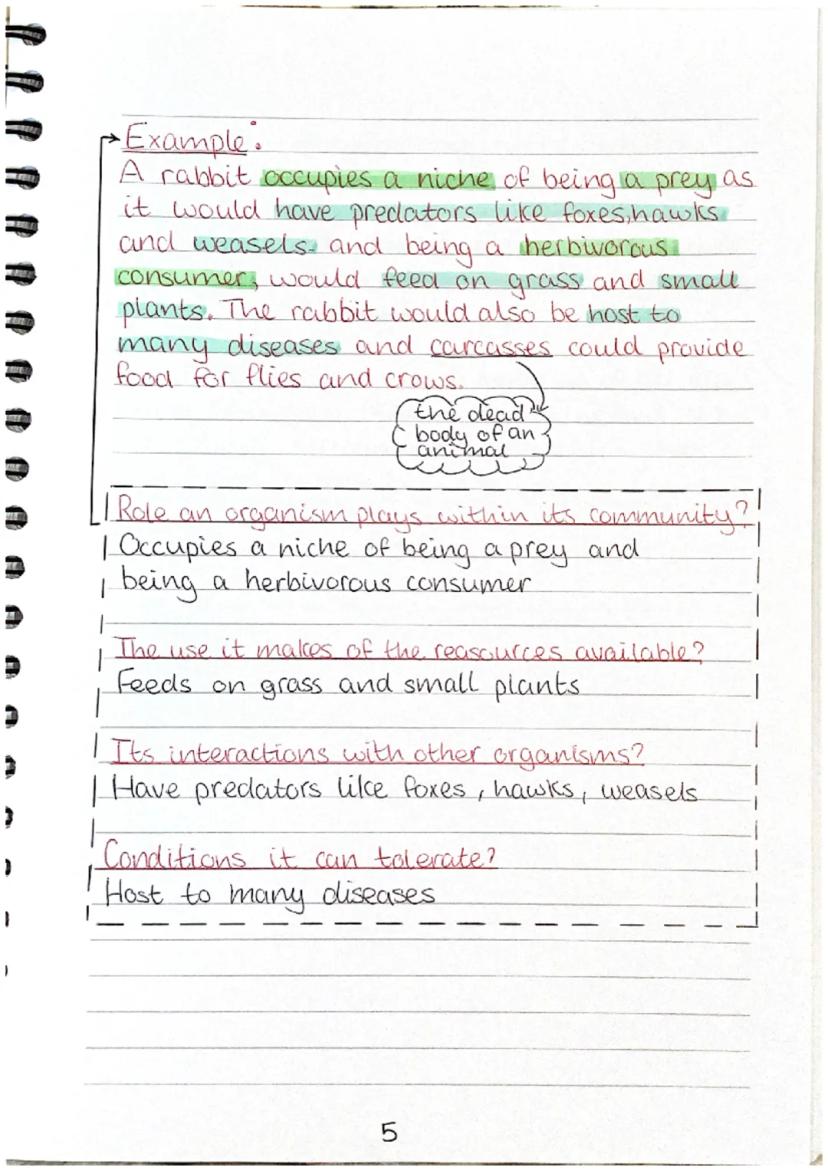 Example:
A rabbit occupies a niche of being a prey as
it would have predators like foxes, hawks
and weasels and being a herbivorous
consumer, would feed on grass and small
plants. The rabbit would also be host to
many diseases and carcasses could provide
food for flies and crows.
the dead
body of an
animal
Role an organism plays within its community?
Occupies a niche of being a prey and
being a herbivorous consumer
The use it makes of the reasources available?
Feeds on grass and small plants
Its interactions with other organisms?
Have predators like foxes, hawks, weasels
Conditions it can tolerate?
Host to many diseases
5